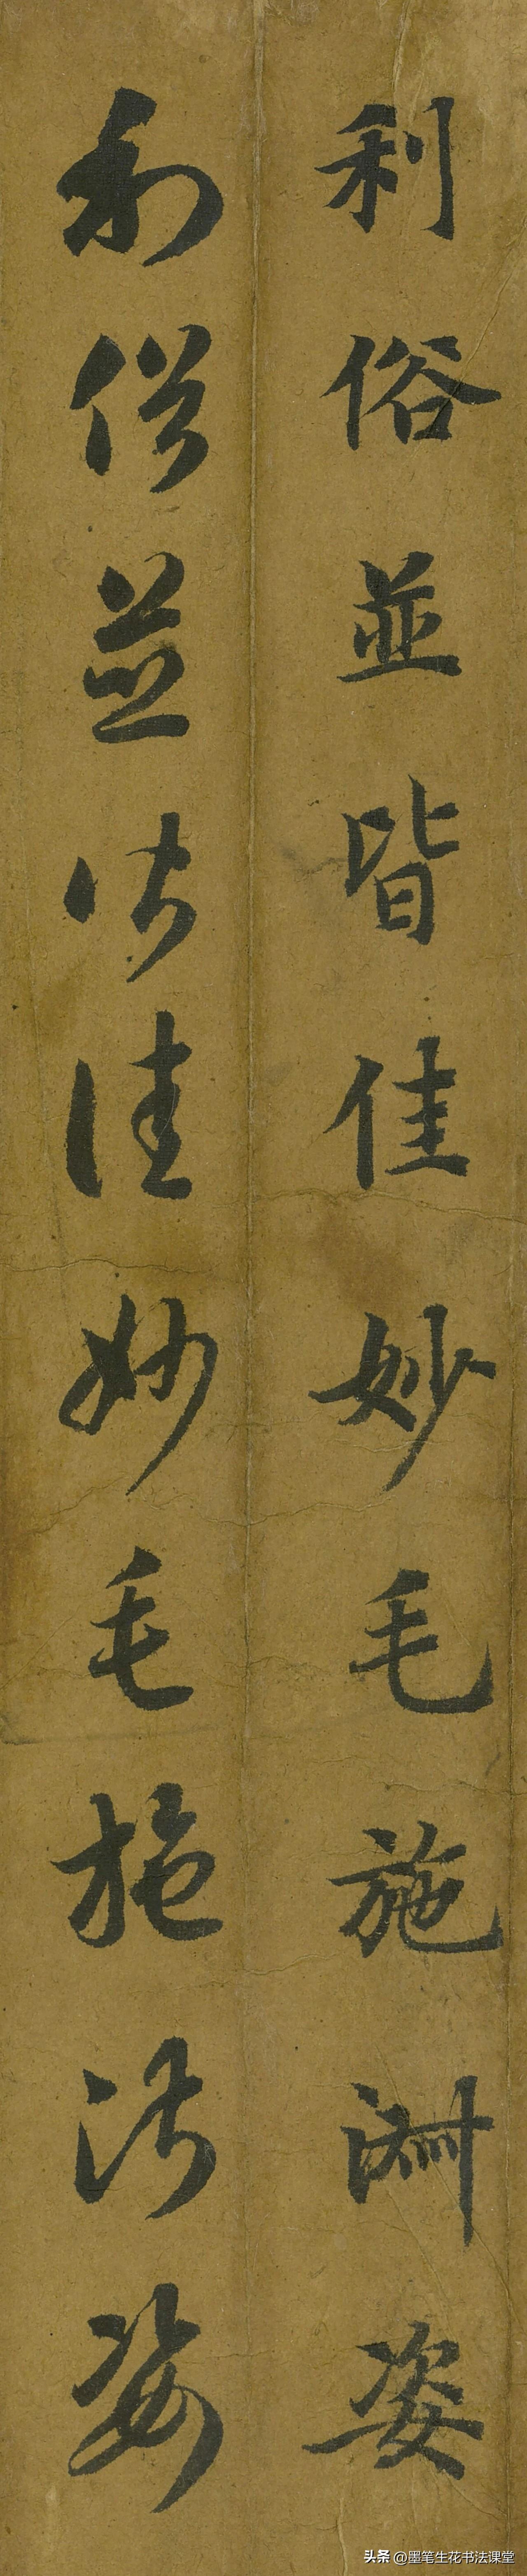 利俗並皆佳妙毛施淑姿
利俗並皆佳妙毛施淑姿
头条 @墨笔生花书法课堂